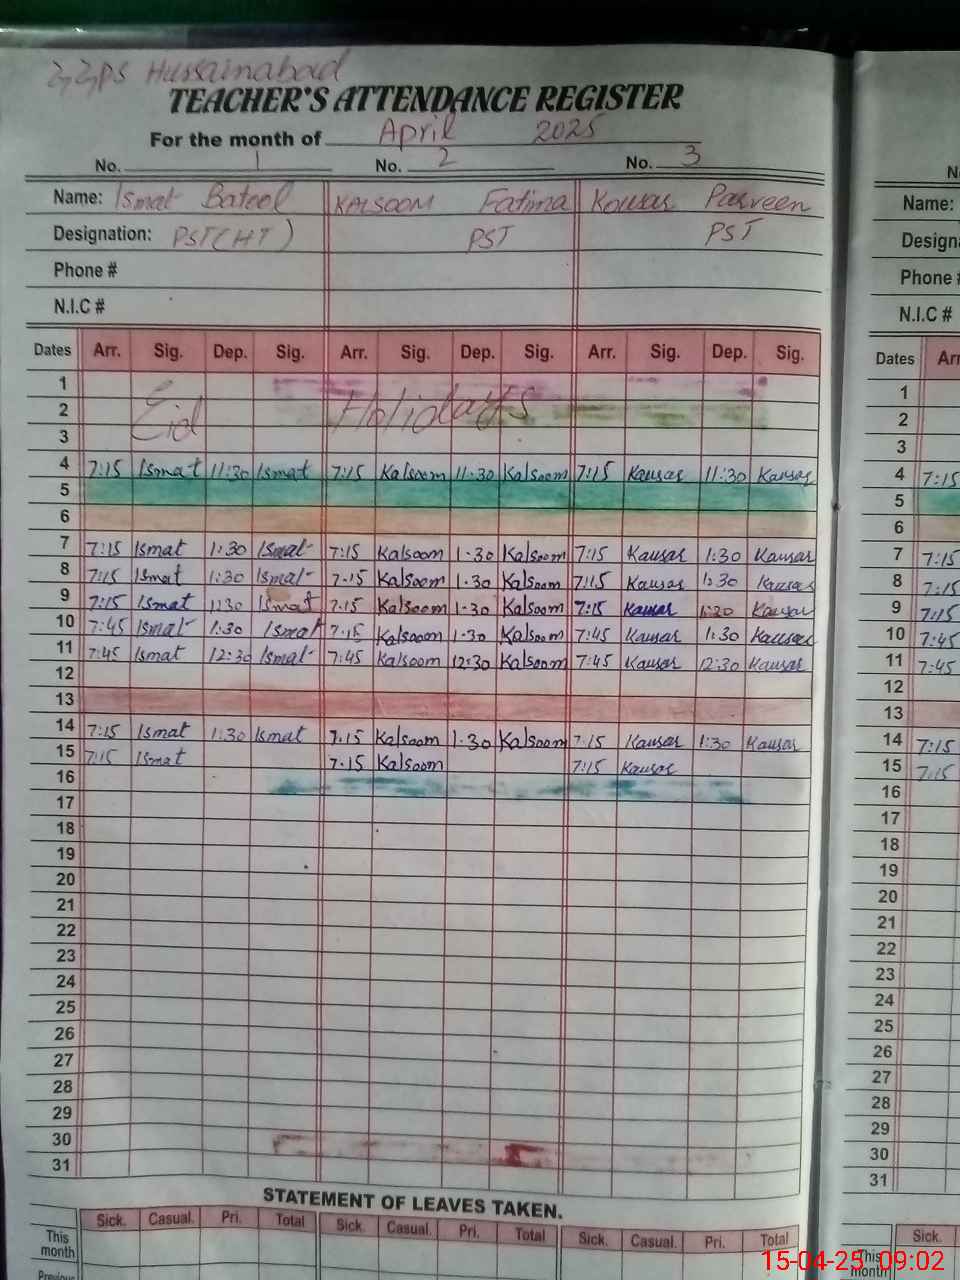 GGPS Hussainabad
TEACHER'S ATTENDANCE REGISTER
For the month of April 2025
No. 1 No. 2 No. 3
Name: Ismat Batool KALSOOM Fatima Kousar Parveen
Designation: PST(HT) PST PST
Phone #
N.I.C #
Dates Arr. Sig. Dep. Sig. Arr. Sig. Dep. Sig. Arr. Sig. Dep. Sig.
1
2 Eid Holidays
3
4 7:15 Ismat 11:30 Ismat 7:15 Kalsoom 11-30 Kalsoom 7:15 Kausar 11:30 Kausar
5
6
7 7:15 Ismat 1:30 Ismat 7:15 Kalsoom 1-30 Kalsoom 7:15 Kausar 1:30 Kausar
8 7:15 Ismat 1:30 Ismat 7-15 Kalsoom 1-30 Kalsoom 7:15 Kausar 1:30 Kausar
9 7:15 Ismat 1:30 Ismat 7-15 Kalsoom 1-30 Kalsoom 7:15 Kausar 1:20 Kausar
10 7:45 Ismat 1:30 Ismat 7-15 Kalsoom 1-30 Kalsoom 7:45 Kausar 1:30 Kausar
11 7:45 Ismat 12:30 Ismat 7:45 Kalsoom 12:30 Kalsoom 7:45 Kausar 12:30 Kausar
12
13
14 7:15 Ismat 1:30 Ismat 7.15 Kalsoom 1-30 Kalsoom 7:15 Kausar 1:30 Kausar
15 7:15 Ismat 7-15 Kalsoom 7:15 Kausar
16
17
18
19
20
21
22
23
24
25
26
27
28
29
30
31
STATEMENT OF LEAVES TAKEN.
Sick. Casual. Pri. Total Sick. Casual. Pri. Total Sick. Casual. Pri. Total
This month
Previous
Name:
Phone #
N.I.C #
Dates
1
2
3
4 7:15
5
6
7 7:15
8 7:15
9 7:15
10 7:45
11 7:45
12
13
14 7:15
15 7:15
16
17
18
19
20
21
22
23
24
25
26
27
28
29
30
31
Sick.
This month
15-04-25 09:02